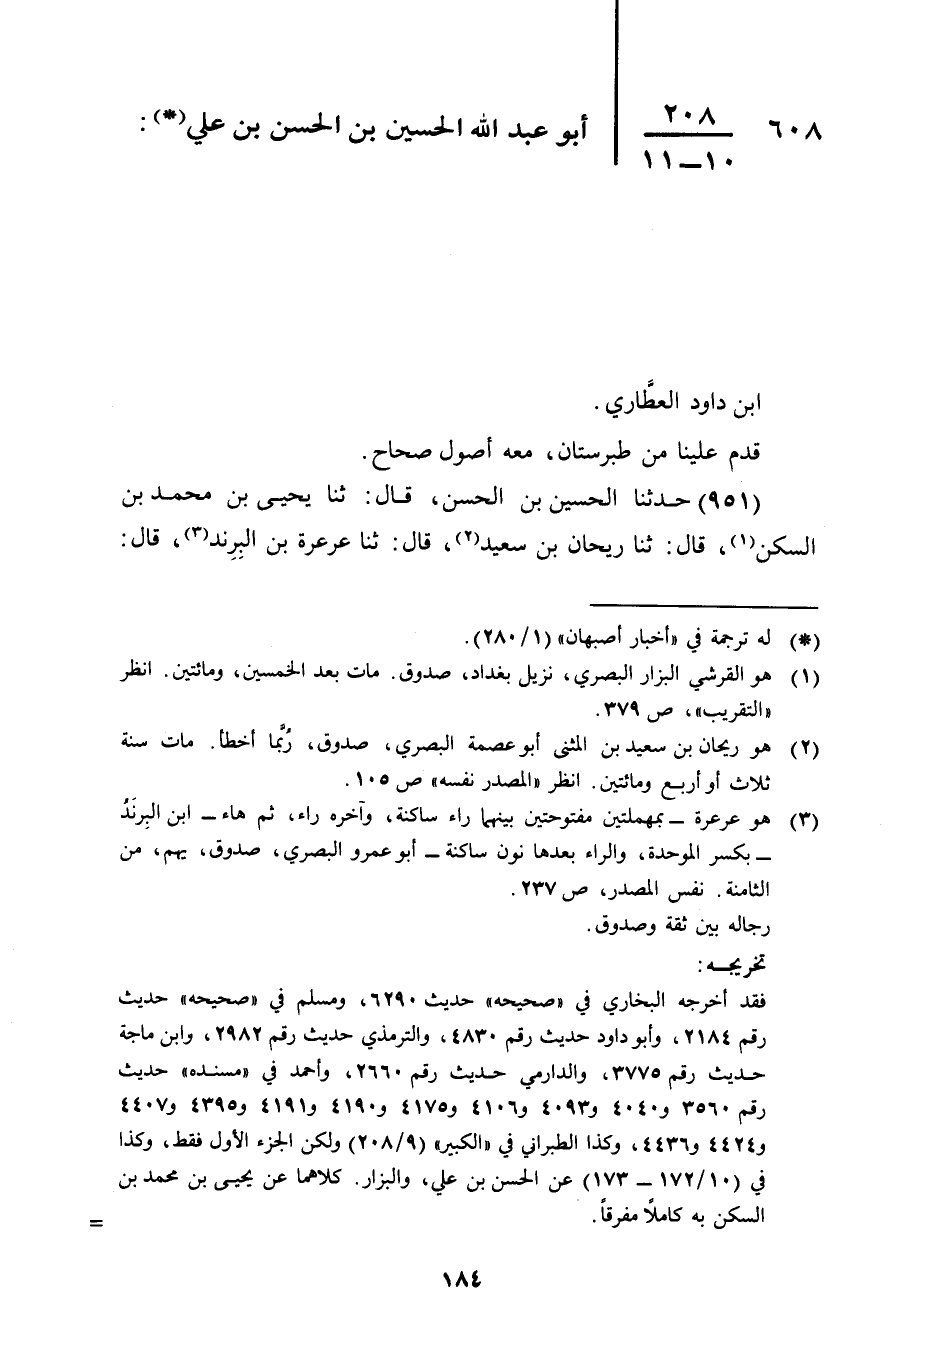 ٦٠٨ ٢٠٨ أبو عبد الله الحسين بن الحسن بن علي(*):
١٠ــ١١
ابن داود العطَّاري.
قدم علينا من طبرستان، معه أصول صحاح.
(٩٥١) حـدثنا الحسين بن الحسن، قـال: ثنا يحيـى بن محمـد بن
السكن(١)، قال: ثنا ريحان بن سعيد(٢)، قال: ثنا عرعرة بن البِرِند(٣)، قال:
(*) له ترجمة في «أخبار أصبهان» (٢٨٠/١).
(١) هو القرشي البزار البصري، نزيل بغداد، صدوق. مات بعد الخمسين، ومائتين. انظر
«التقريب»، ص ٣٧٩.
(٢) هو ريحان بن سعيد بن المثنى أبو عصمة البصري، صدوق، رُبَّما أخطأ. مات سنة
ثلاث أو أربع ومائتين. انظر «المصدر نفسه» ص ١٠٥.
(٣) هو عرعرة ــ بمهملتين مفتوحتين بينهما راء ساكنة، وآخره راء، ثم هاء ــ ابن البِرنَدُ
ــ بكسر الموحدة، والراء بعدها نون ساكنة ــ أبو عمرو البصري، صدوق، يهم، من
الثامنة. نفس المصدر، ص ٢٣٧.
رجاله بين ثقة وصدوق.
تخريجـه:
فقد أخرجه البخاري في «صحيحه» حديث ٦٢٩٠، ومسلم في «صحيحه» حديث
رقم ٢١٨٤، وأبو داود حديث رقم ٤٨٣٠، والترمذي حديث رقم ٢٩٨٢، وابن ماجة
حـديث رقم ٣٧٧٥، والدارمي حـديث رقم ٢٦٦٠، وأحمد في «مسنـده» حديث
رقم ٣٥٦٠ و٤٠٤٠ و٤٠٩٣ و٤١٠٦ و٤١٧٥ و٤١٩٠ و٤١٩١ و٤٣٩٥ و٤٤٠٧
و٤٤٢٤ و٤٤٣٦، وكذا الطبراني في «الكبير» (٢٠٨/٩) ولكن الجزء الأول فقط، وكذا
في (١٧٢/١٠ ــ ١٧٣) عن الحسن بن علي، والبزار. كلاهما عن يحيـى بن محمد بن
السكن به كاملاً مفرقاً. =
١٨٤